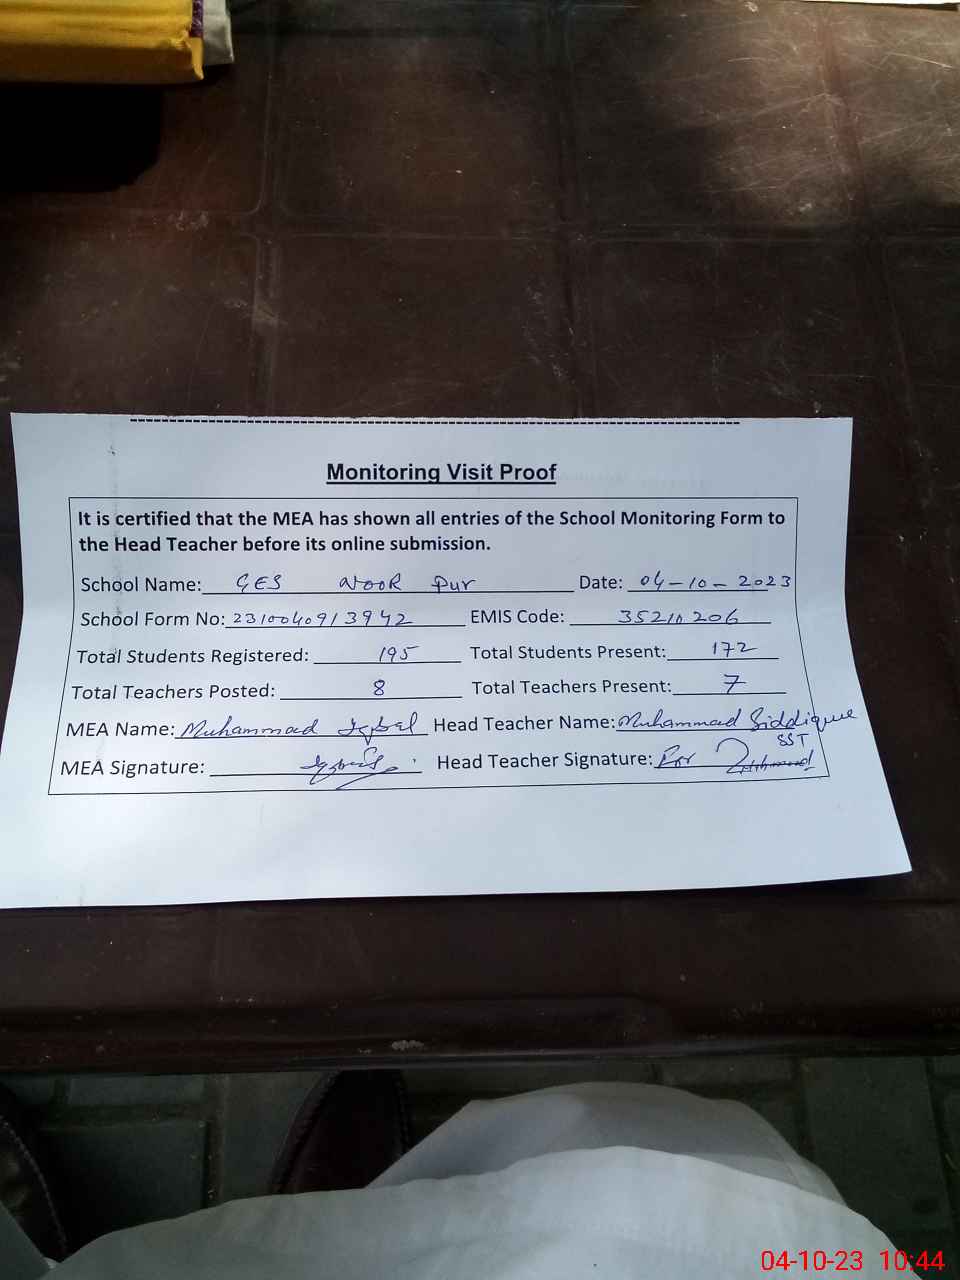 Monitoring Visit Proof
It is certified that the MEA has shown all entries of the School Monitoring Form to
the Head Teacher before its online submission.
School Name: GES NOOR Pur Date: 04-10-2023
School Form No: 2310040913942 EMIS Code: 35210206
Total Students Registered: 195 Total Students Present: 172
Total Teachers Posted: 8 Total Teachers Present: 7
MEA Name: Muhammad Iqbal Head Teacher Name: Muhammad Siddique
SST
MEA Signature: Head Teacher Signature: For
04-10-23 10:44